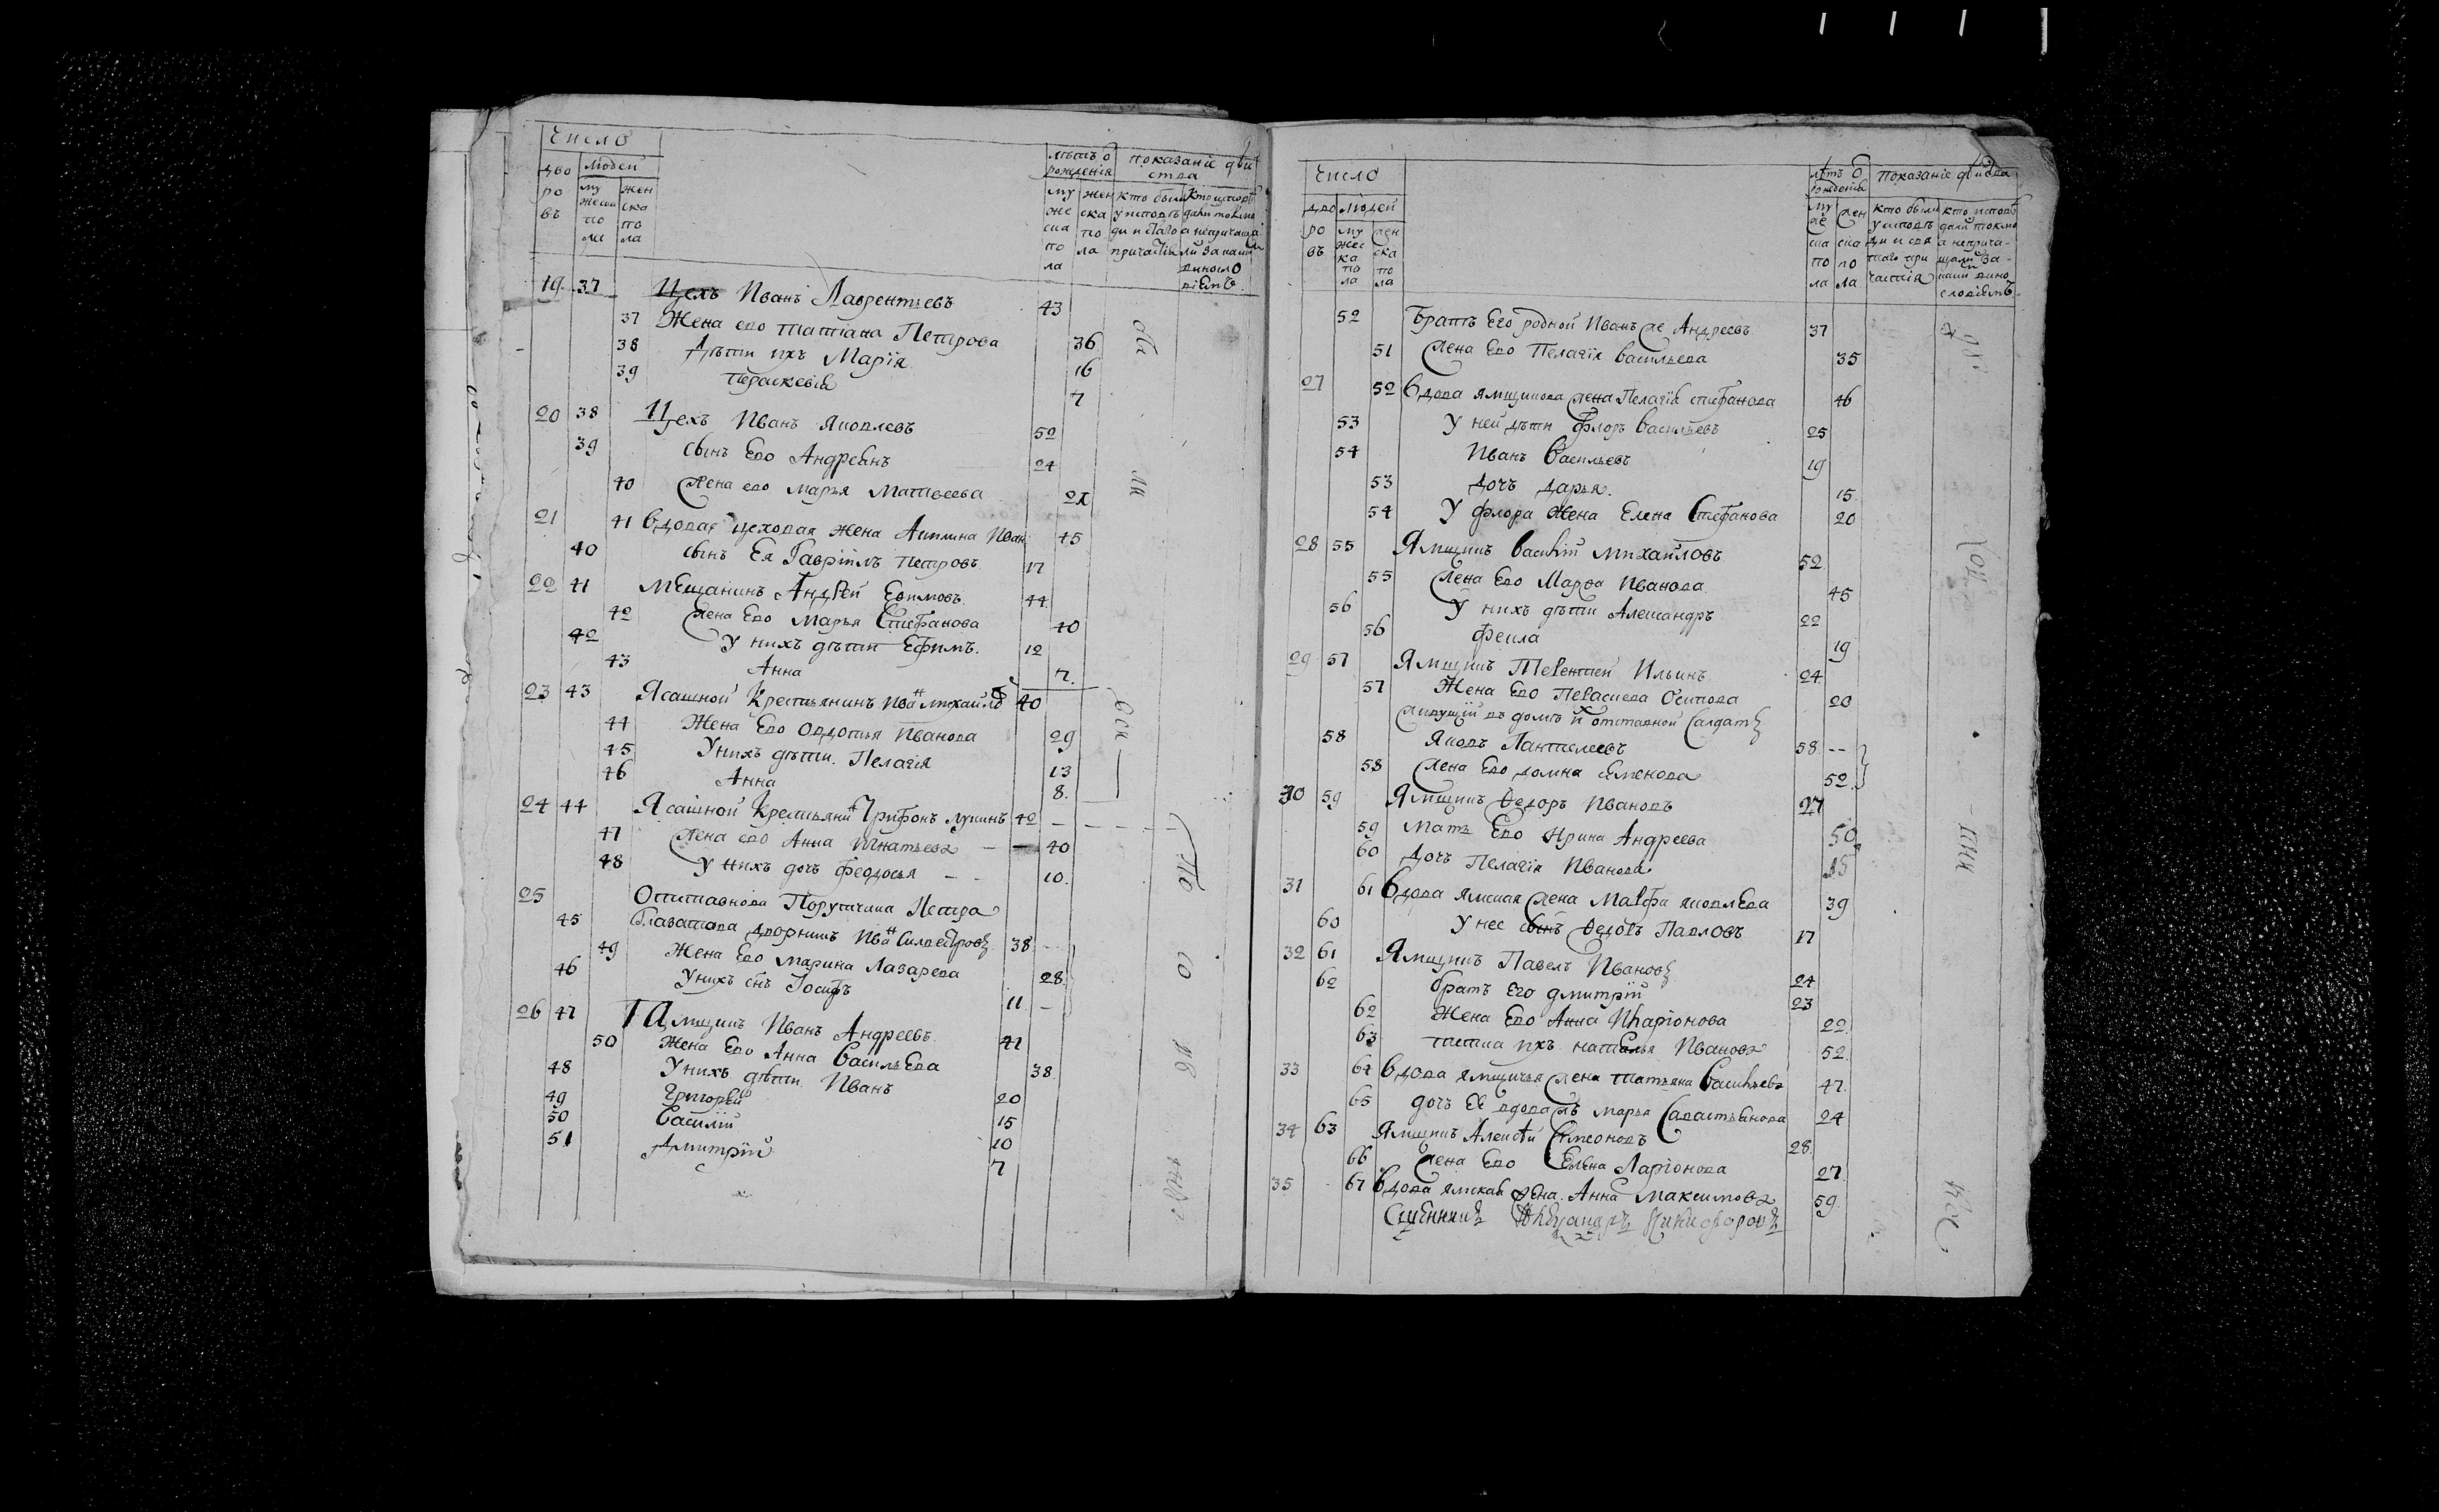 число
дворовъ
людей
мужеска пола
женска пола
лѣтъ ѿ рождения
показание действа
мужеска пола
женска пола
кто были у исповеди и святаго причастия
19 37 Цехъ Иванъ Лаврентьевъ 43
37 Жена ево татиана Петрова 36
38 Дѣти ихъ Мария 16
39 Параскевия 7
20 38 Цехъ Иванъ Яковлевъ 52
39 Сынъ Ево Андреянъ 24
40 Жена ево марья Матвеева
21 41 Вдовая цеховая жена Акилина Иван 45
40 сынъ Ея Гавриилъ петровъ 17
22 41 Мещанинъ Андрей Ефимовъ 44
42 Жена Ево Марья Стефанова 40
42 У нихъ дѣти Ефимъ. 12
43 Анна 7.
23 43 Ясашной Крестьянинъ Иван михайло 40
44 Жена Ево Овдотья Иванова 29
45 У нихъ дѣти. Пелагия 13
46 Анна 8.
24 44 Ясашной Крестьянин Трифонъ лукинъ 42
47 Жена ево Анна Игнатьева 40
48 У нихъ дочь феодосья 10.
25 Отставнова Порутчика Петра
45 дворникъ Иван Силвестровъ 38
49 Жена Ево марина Лазарева 28.
46 У нихъ снъ Иосифъ 11
26 47 Ямщикъ Иванъ Андреевъ 41
50 Жена Ево Анна Васильева 38
48 У нихъ дѣти Иванъ 20
49 Григорей 15
50 Василий 10
51 Дмитрий 7
число
дворовъ
людей
мужеска пола
женска пола
лѣтъ ѿ рождения
Показание действа
52 Братъ Его родной Иванъ же Андреевъ 37
51 Жена Ево Пелагия Васильева 35
27 52 Вдова ямщикова жена Пелагия стефанова 46
53 У ней дѣти Флоръ Васильевъ 25
54 Иванъ Васильевъ 19
53 дочъ дарья. 15.
54 У флора Жена Елена Стефанова 20
28 55 Ямщикъ Василий михайловъ 52
55 Жена Ево Марфа Иванова 45
56 У нихъ дѣти Александръ 22
56 Фекла 19
29 57 Ямщикъ Терентей Ильинъ 24
57 Жена Ево Осипова 20
живущий въ домѣ их отставной Салдатъ
58 Яковъ Пантелеевъ 58
58 Жена Ево домна семенова 52
30 59 Ямщикъ Ѳедоръ Ивановъ 27
59 Мать Ево Ирина Андреева 50
60 Дочъ Пелагия Иванова 15
31 61 Вдова ямская жена Марфа яковлева 39
60 У нее сынъ Ѳедоръ Павловъ 17
32 61 Ямщикъ Павелъ Ивановъ 24
62 братъ Его дмитрий 23
62 Жена Ево Анна Иларионова 22
63 тетка ихъ наталья Иванова 52
33 64 Вдова ямщичья жена татьяна Васильева 47
65 дочъ Ее вдова жъ марья Савастьянова 24
34 63 Ямщикъ Алексѣй Симеоновъ 28.
66 Жена Ево Елена Ларионова 27
35 67 Вдова ямская жена Анна Максимова 59
Священникъ Александръ Никифоровъ